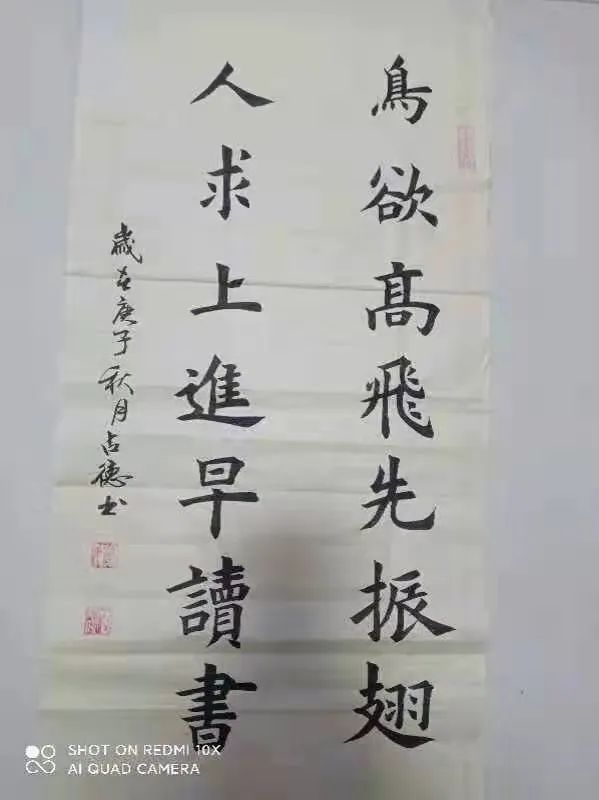 鳥欲髙飛先振翅
人求上進早讀書
歲在庚子秋月占德书
SHOT ON REDMI 10X
AI QUAD CAMERA